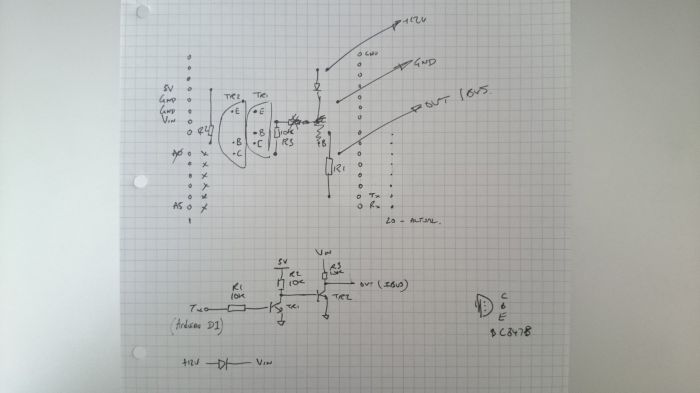 +12V
GND
GND
OUT / IBUS.
5V
GND
GND
VIN
TR2
TR1
E
E
B
B
C
C
R2
10K
R3
R1
A0
A5
Tx
Rx
VIN
5V
R3
10K
R2
10K
OUT (IBUS)
R1
10K
TR2
TR1
Tx
(Arduino D1)
+12V
VIN
C
B
E
BC847B